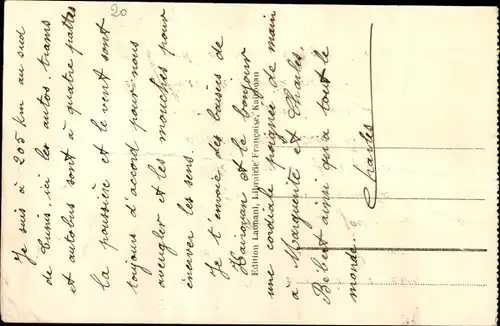 20
Je suis à 205 km au sud
de Tunis, ici les autos, trams
et autobus sont à quatre pattes
la poussière et le vent sont
toujours d'accord pour nous
aveugler et les mouches pour
énerver les sens.
Je t'envoie des baisers de
Kairouan et le bonjour
une cordiale poignée de main
à Marguerite et Charles,
Bébert ainsi qu'à tout le
monde.
Charles
Edition Laumani, Librairie Française, Kairouan